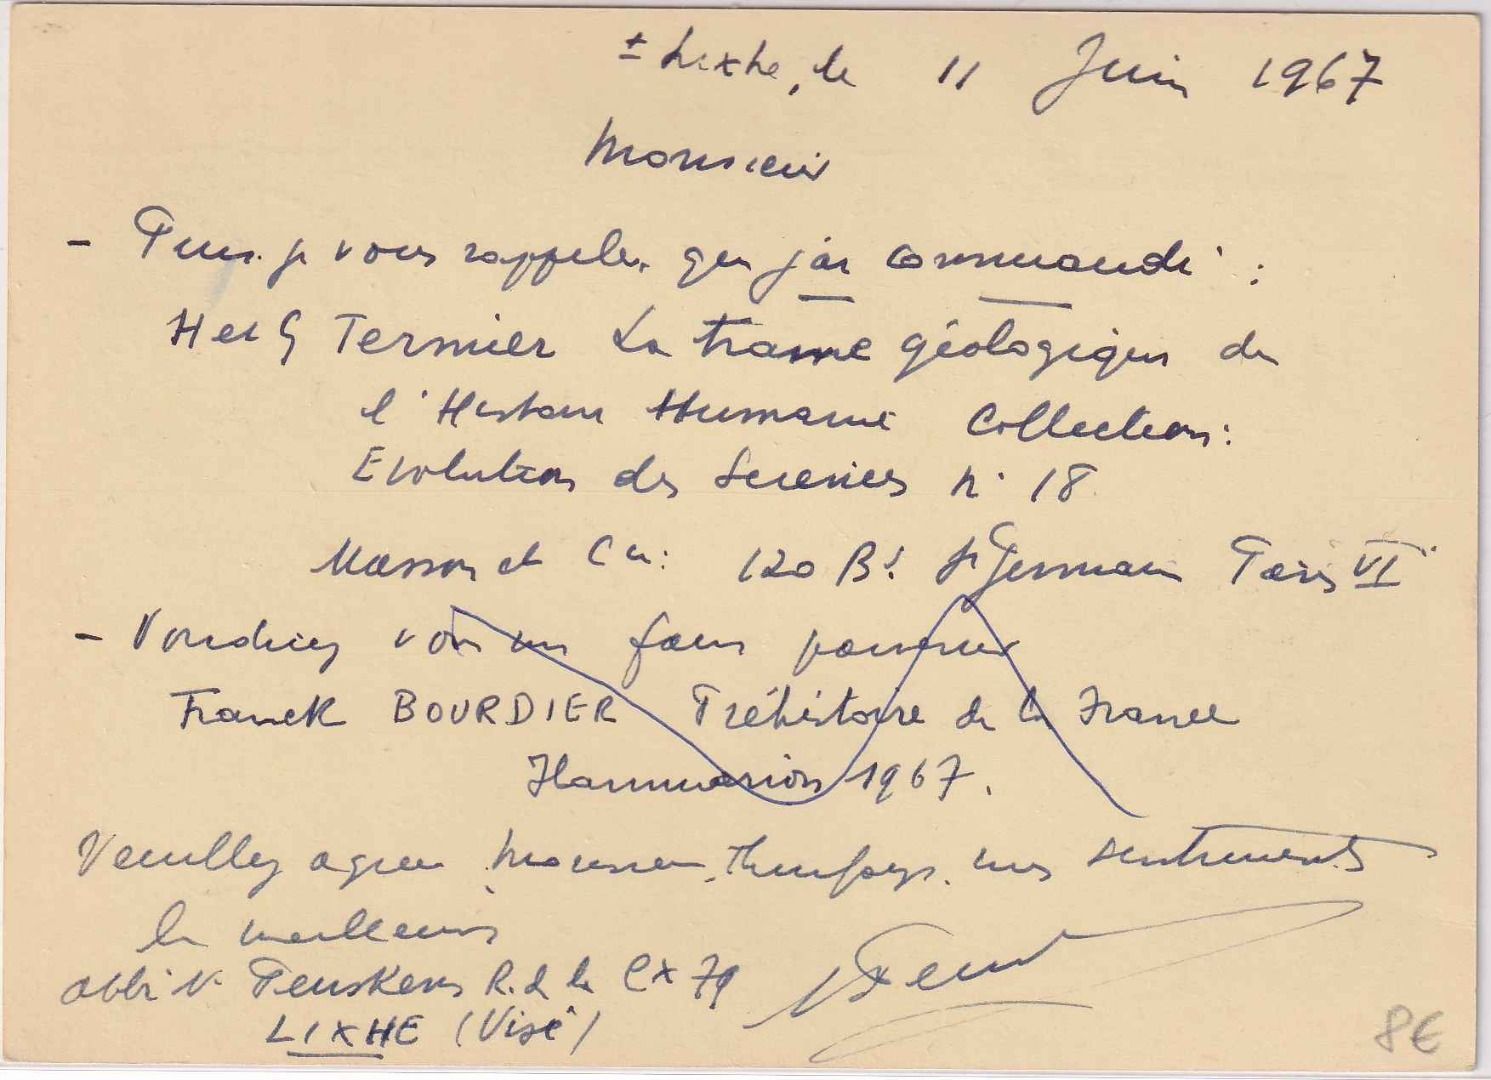 ± Lixhe, le 11 Juin 1967
Monsieur
- Puis-je vous rappeler que j'ai commandé :
H et G Termier La trame géologique de
l'Histoire Humaine Collection:
Evolution des Sciences n° 18
Masson et Cie: 120 Bd St Germain Paris VI
- Voudriez vous me faire parvenir
Franck BOURDIER Préhistoire de la France
Flammarion 1967.
Veuillez agréer Monsieur, mes sentiments
les meilleurs
abbé V. Peuskens R. de la Cx 79
LIXHE (Visé)
8€